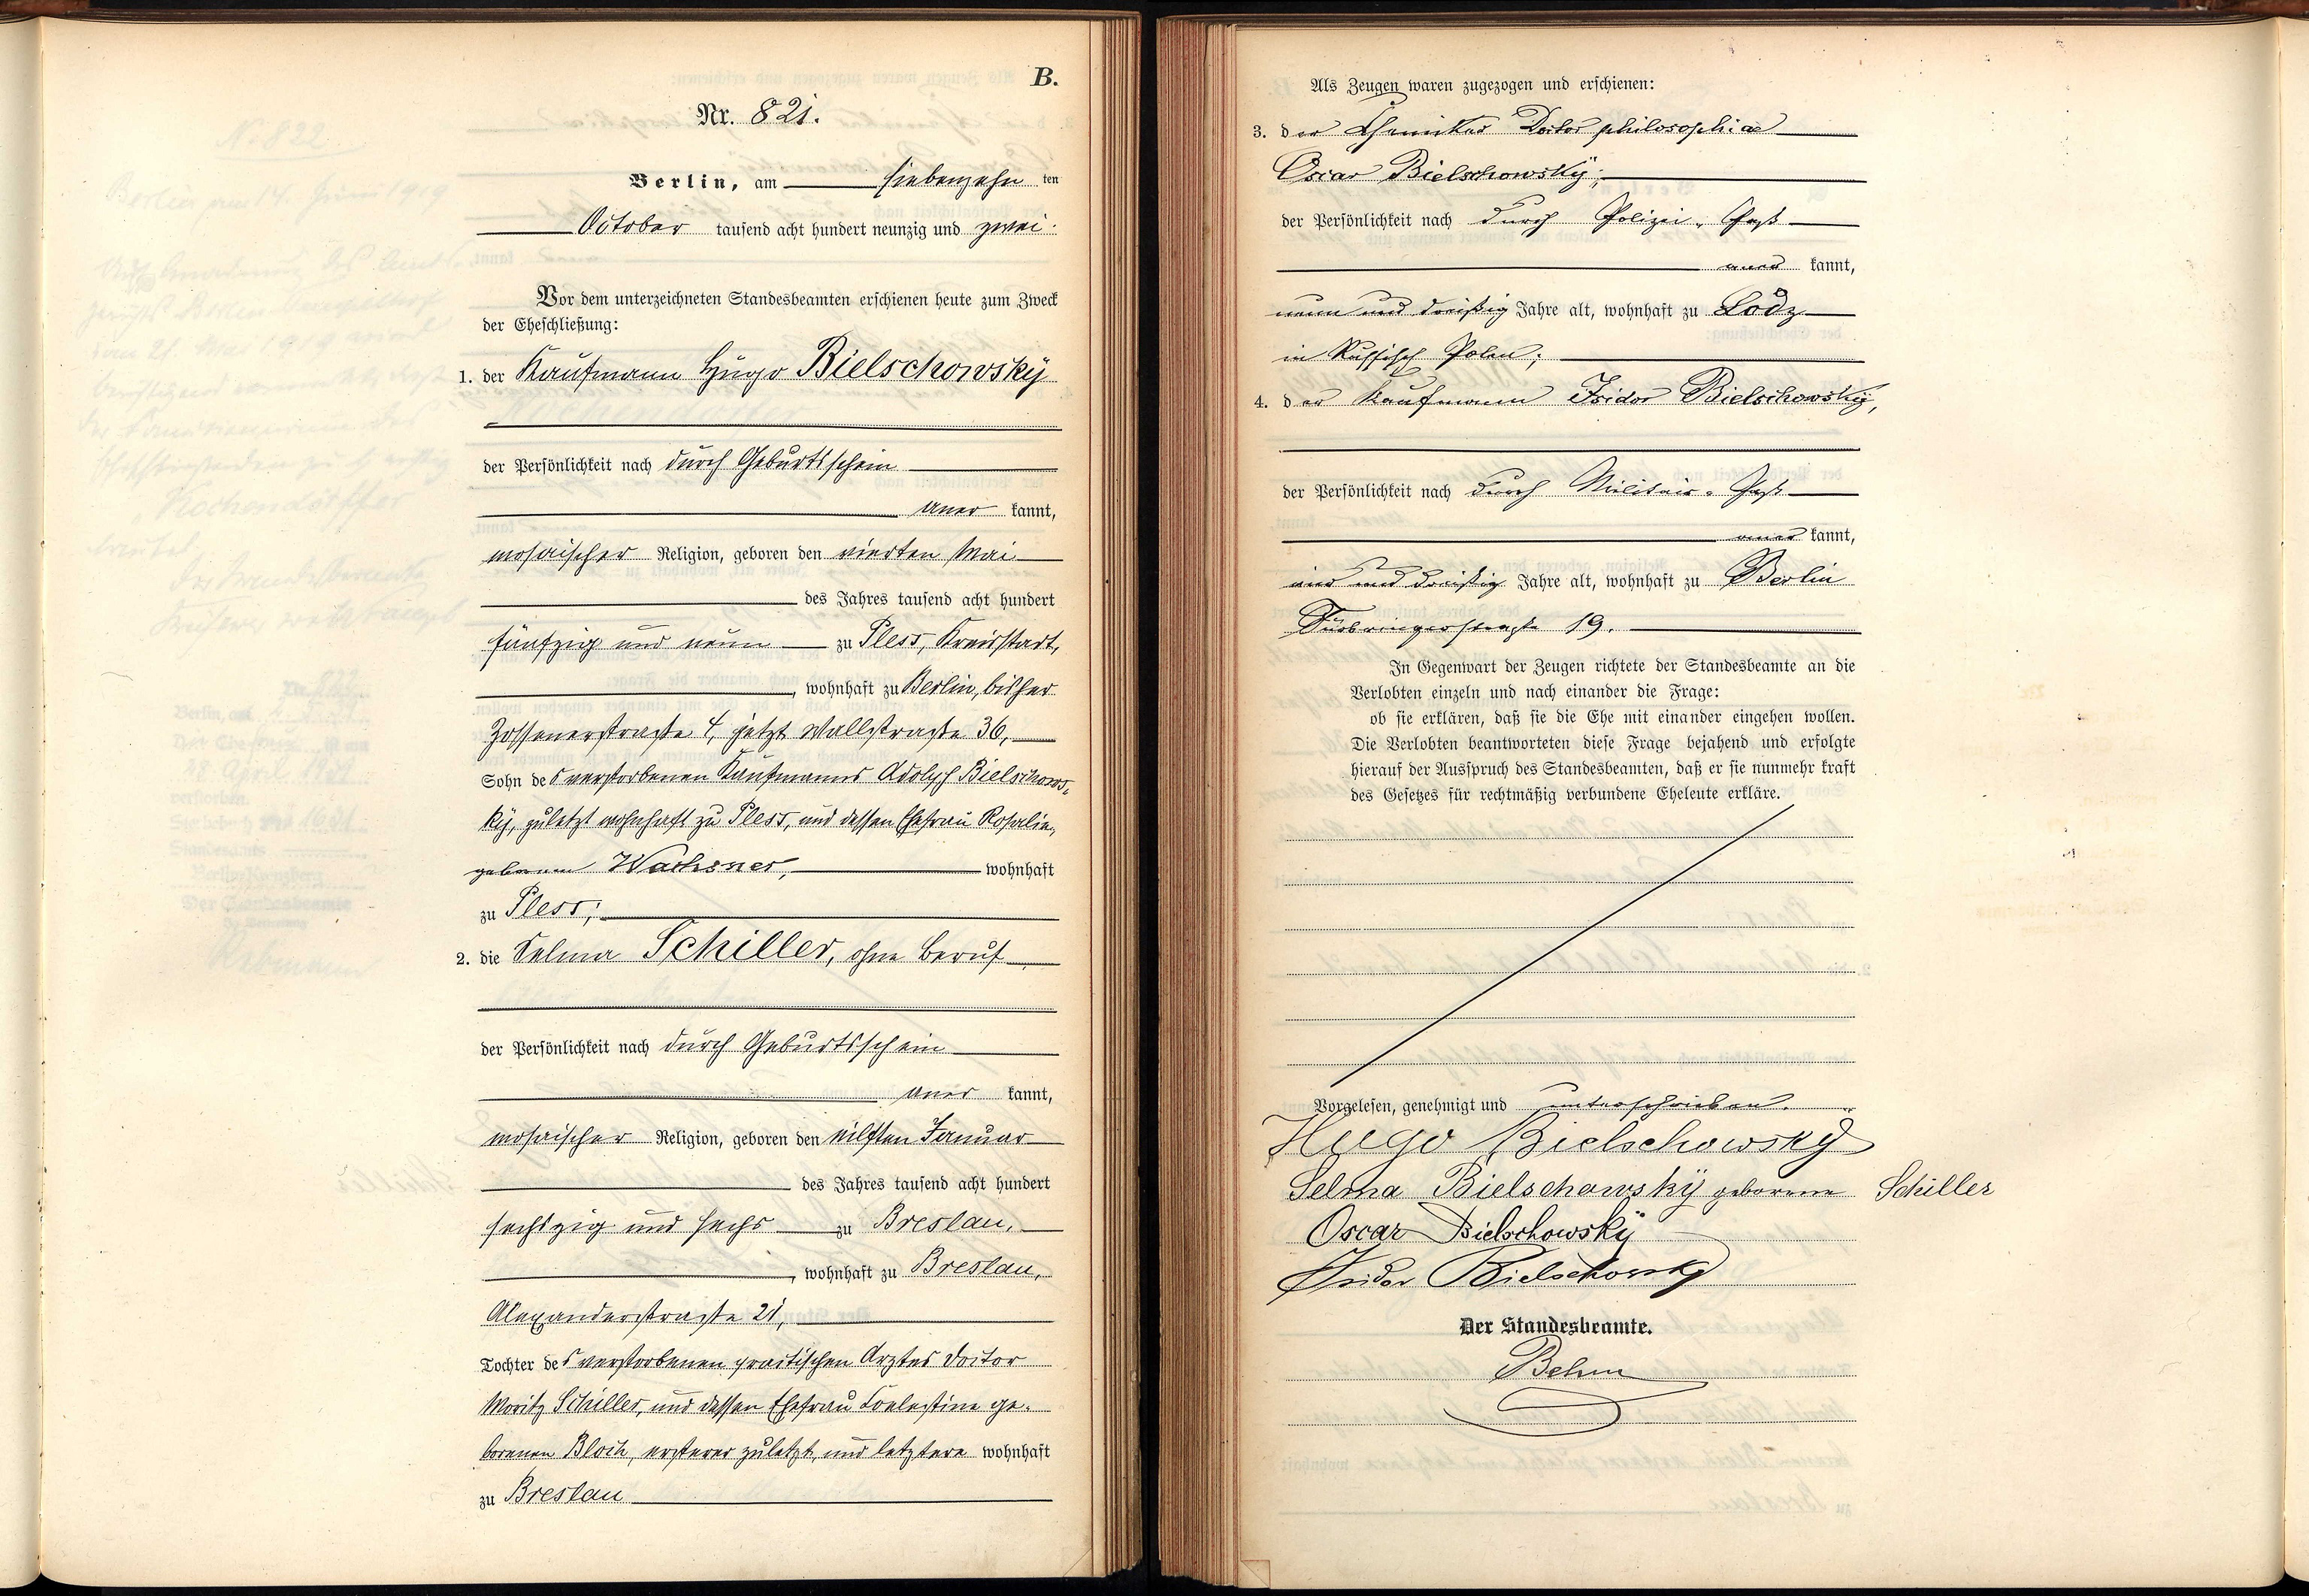 B.
Nr. 821.
Berlin, am siebenzehn ten
October tausend acht hundert neunzig und zwei.
Vor dem unterzeichneten Standesbeamten erschienen heute zum Zweck
der Eheschließung:
1. der Kaufmann Hugo Bielschowsky
der Persönlichkeit nach durch Geburtsschein
aner kannt,
mosaischer Religion, geboren den vierten Mai
des Jahres tausend acht hundert
fünfzig und neun zu Pless, Kreisstadt,
, wohnhaft zu Berlin, bisher
Zossenerstraße 4, jetzt Wallstraße 36,
Sohn des verstorbenen Kaufmanns Adolph Bielschows-
ky, zuletzt wohnhaft zu Pless, und dessen Ehefrau Rosalie,
geborenen Wachsner, wohnhaft
zu Pless;
2. die Selma Schiller, ohne Beruf
der Persönlichkeit nach durch Geburtsschein
aner kannt,
mosaischer Religion, geboren den eilften Januar
des Jahres tausend acht hundert
sechszig und sechs zu Breslau,
, wohnhaft zu Breslau,
Alexanderstraße 21,
Tochter des verstorbenen practischen Arztes Doctor
Moritz Schiller, und dessen Ehefrau Coelestine ge-
borenen Bloch, ersterer zuletzt, und letztere wohnhaft
zu Breslau
Als Zeugen waren zugezogen und erschienen:
3. der Chemiker Doctor philosophiae
Oscar Bielschowsky;
der Persönlichkeit nach durch Polizei-Paß
aner kannt,
neun und dreißig Jahre alt, wohnhaft zu Lodz
in Russisch Polen;
4. der Kaufmann Isidor Bielschowsky,
der Persönlichkeit nach durch Militair-Paß
aner kannt,
vier und dreißig Jahre alt, wohnhaft zu Berlin
Fürbringerstraße 19.
In Gegenwart der Zeugen richtete der Standesbeamte an die
Verlobten einzeln und nach einander die Frage:
ob sie erklären, daß sie die Ehe mit einander eingehen wollen.
Die Verlobten beantworteten diese Frage bejahend und erfolgte
hierauf der Ausspruch des Standesbeamten, daß er sie nunmehr kraft
des Gesetzes für rechtmäßig verbundene Eheleute erkläre.
Vorgelesen, genehmigt und unterschrieben.
Hugo Bielschowsky
Selma Bielschowsky geborene Schiller
Oscar Bielschowsky
Isidor Bielschowsky
Der Standesbeamte.
Behm